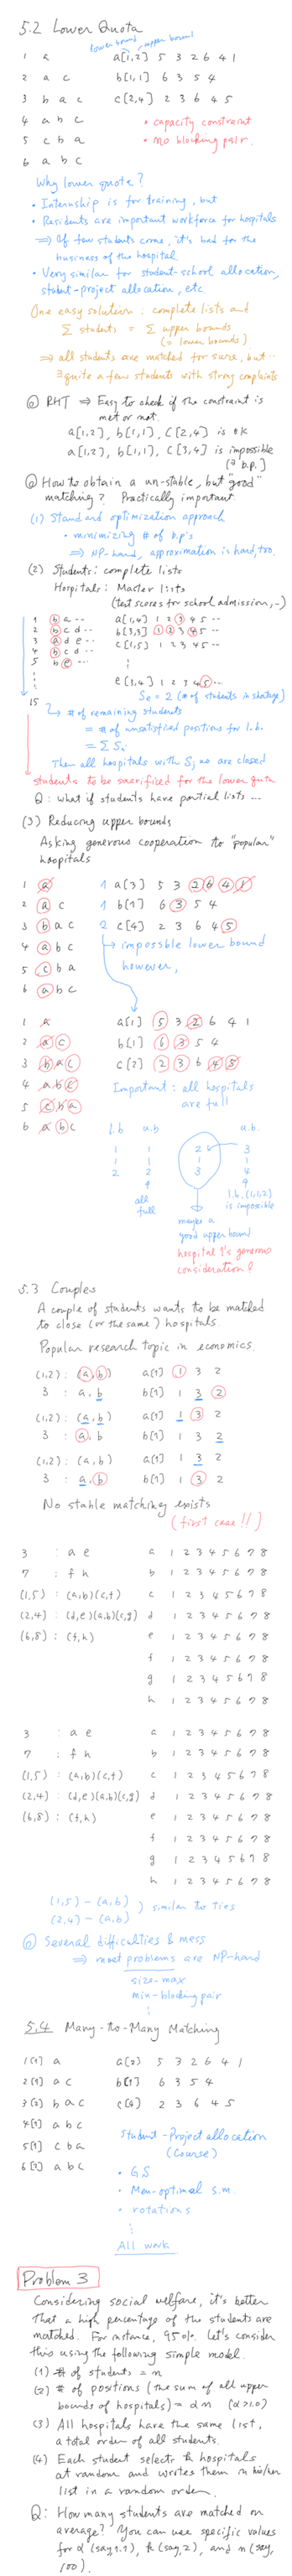 5.2 Lower Quota
lower bound upper bound
1 a a[1,2] 5 3 2 6 4 1
2 a c b[1,1] 6 3 5 4
3 b a c c[2,4] 2 3 6 4 5
4 a b c • capacity constraint
5 c b a • no blocking pair.
6 a b c
Why lower quote?
• Internship is for training, but
• Residents are important workforce for hospitals
⇒ If few students come, it's bad for the
business of the hospital
• Very similar for student-school allocation,
student-project allocation, etc.
One easy solution: complete lists and
Σ students = Σ upper bounds
(= lower bounds)
⇒ all students are matched for sure, but..
∃ quite a few students with strong complaints
◎ RHT ⇒ Easy to check if the constraint is
met or not.
a[1,2], b[1,1], c[2,4] is OK
a[1,2], b[1,1], c[3,4] is impossible
[∃ b.p.]
◎ How to obtain a un-stable, but "good"
matching? Practically important
(1) Standard optimization approach
• minimizing # of b.p's
⇒ NP-hard, approximation is hard, too.
(2) Students: complete lists
Hospitals: Master lists
(test scores for school admission, ..)
1 b a .. a[1,4] 1 2 3 4 5 ..
2 b c d .. b[3,3] 1 2 3 4 5 ..
3 a d e .. c[1,5] 1 2 3 4 5 ..
4 b c d ..
5 b e .. e[3,4] 1 2 3 4 5 ..
15 Se = 2 (# of students in shortage)
↳ # of remaining students
= # of unsatisfied positions for l.b.
= Σ Si
Then all hospitals with Si > 0 are closed
students to be sacrificed for the lower quota
Q: what if students have partial lists ...
(3) Reducing upper bounds
Asking generous cooperation to "popular"
hospitals
1 a 1 a[3] 5 3 2 6 4 1
2 a c 1 b[1] 6 3 5 4
3 b a c 2 c[4] 2 3 6 4 5
4 a b c ↳ impossble lower bound
5 c b a however,
6 a b c
1 a a[1] 5 3 2 6 4 1
2 a c b[1] 6 3 5 4
3 b a c c[2] 2 3 6 4 5
4 a b c Important: all hospitals
5 c b a are full
6 a b c
l.b u.b u.b.
1 1 2 3
1 1 1 1
2 2 3 4
4 9
all l.b. (1,1,2)
full is impossible
maybe a
good upper bound
hospital 1's generous
consideration!
5.3 Couples
A couple of students wants to be matched
to close (or the same) hospitals.
Popular research topic in economics.
(1,2) : (a,b) a[1] 1 3 2
3 : a, b b[1] 1 3 2
(1,2) : (a,b) a[1] 1 3 2
3 : a, b b[1] 1 3 2
(1,2) : (a,b) a[1] 1 3 2
3 : a, b b[1] 1 3 2
No stable matching exists
(first case!!)
3 : a e a 1 2 3 4 5 6 7 8
7 : f h b 1 2 3 4 5 6 7 8
(1,5) : (a,b)(c,f) c 1 2 3 4 5 6 7 8
(2,4) : (d,e)(a,b)(c,g) d 1 2 3 4 5 6 7 8
(6,8) : (f,h) e 1 2 3 4 5 6 7 8
f 1 2 3 4 5 6 7 8
g 1 2 3 4 5 6 7 8
h 1 2 3 4 5 6 7 8
3 : a e a 1 2 3 4 5 6 7 8
7 : f h b 1 2 3 4 5 6 7 8
(1,5) : (a,b)(c,f) c 1 2 3 4 5 6 7 8
(2,4) : (d,e)(a,b)(c,g) d 1 2 3 4 5 6 7 8
(6,8) : (f,h) e 1 2 3 4 5 6 7 8
f 1 2 3 4 5 6 7 8
g 1 2 3 4 5 6 7 8
h 1 2 3 4 5 6 7 8
(1,5) – (a,b)
(2,4) – (a,b) ) similar to ties
◎ Several difficulties & mess
⇒ most problems are NP-hard
size-max
min-blocking pair
5.4 Many-to-Many Matching
1[1] a a[2] 5 3 2 6 4 1
2[1] a c b[1] 6 3 5 4
3[2] b a c c[4] 2 3 6 4 5
4[1] a b c
5[1] c b a Student-Project allocation
6[2] a b c (course)
• GS
• Men-optimal s.m.
• rotations
All work
Problem 3
Considering social welfare, it's better
that a high percentage of the students are
matched. For instance, 95%. Let's consider
this using the following simple model.
(1) # of students = n
(2) # of positions (the sum of all upper
bounds of hospitals) = αn (α>1.0)
(3) All hospitals have the same list,
a total order of all students.
(4) Each student selects k hospitals
at random and writes them in his/her
list in a random order.
Q: How many students are matched on
average? You can use specific values
for α (say, 1.1), k (say, 2), and n (say,
100).